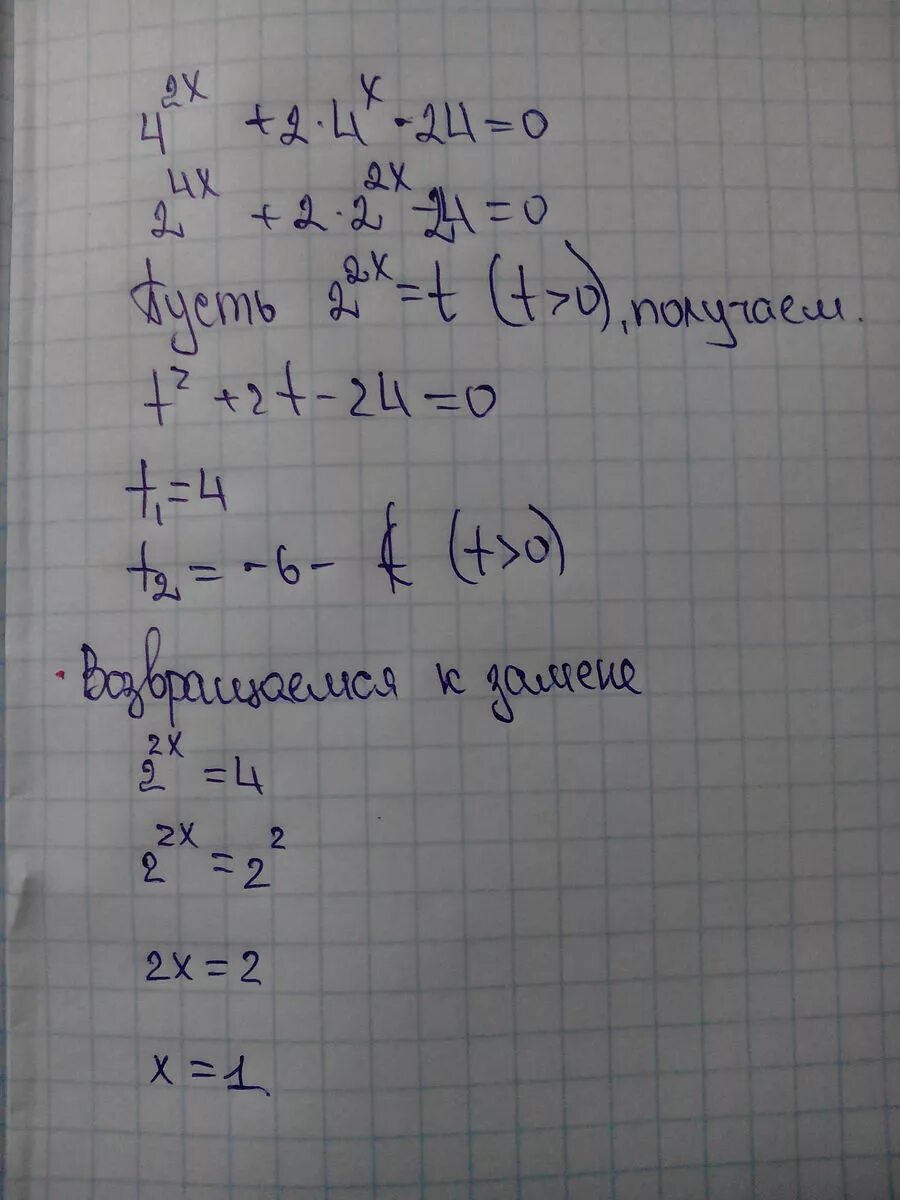 4^{2x} + 2·4^{x} - 24 = 0
2^{4x} + 2·2^{2x} - 24 = 0
Пусть 2^{2x} = t (t>0), получаем.
t² + 2t - 24 = 0
t₁ = 4
t₂ = -6 - (t>0)
Возвращаемся к замене
2^{2x} = 4
2^{2x} = 2²
2x = 2
x = 1